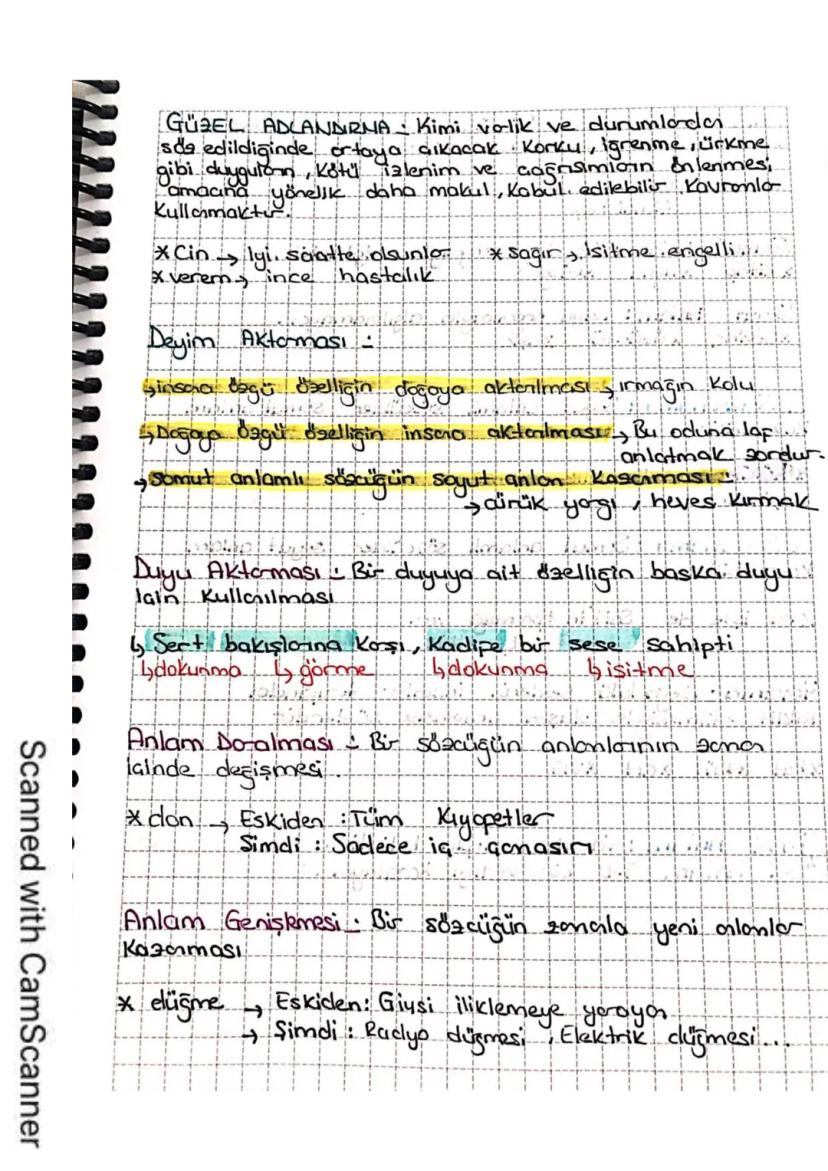 GÜZEL ADLANDIRMA : Kimi varlık ve durumlardan
söz edildiğinde ortaya çıkacak korku, iğrenme, ürkme
gibi duyguların, kötü izlenim ve çağrışımların önlenmesi
amacına yönelik daha makul, kabul edilebilir kavramlar
kullanmaktır.
* Cin → İyi saatte olsunlar * sağır → İşitme engelli...
* verem → ince hastalık
Deyim Aktarması :
↳ insana özgü özelliğin doğaya aktarılması → ırmağın kolu
↳ Doğaya özgü özelliğin insana aktarılması → Bu oduna laf
anlatmak zordur.
→ Somut anlamlı sözcüğün soyut anlam kazanması :
→ çürük yargı, heves kırmak
Duyu Aktarması : Bir duyuya ait özelliğin başka duyu
için kullanılması
↳ Sert bakışlarına karşı, kadife bir sese sahipti
↳dokunma ↳görme ↳dokunma ↳işitme
Anlam Daralması : Bir sözcüğün anlamlarının zaman
içinde değişmesi.
* don → Eskiden : Tüm kıyafetler
Şimdi : Sadece iç çamaşırı
Anlam Genişlemesi : Bir sözcüğün zamanla yeni anlamlar
kazanması
* düğme → Eskiden: Giysi iliklemeye yarayan
→ Şimdi : Radyo düğmesi, Elektrik düğmesi...
Scanned with CamScanner